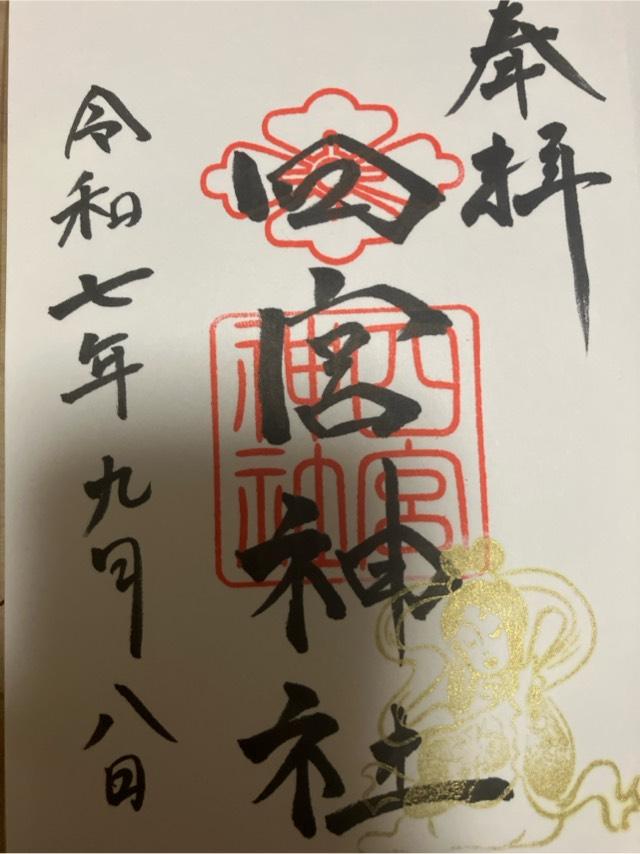 奉拝
四宮神社
四宮神社
令和七年九月八日